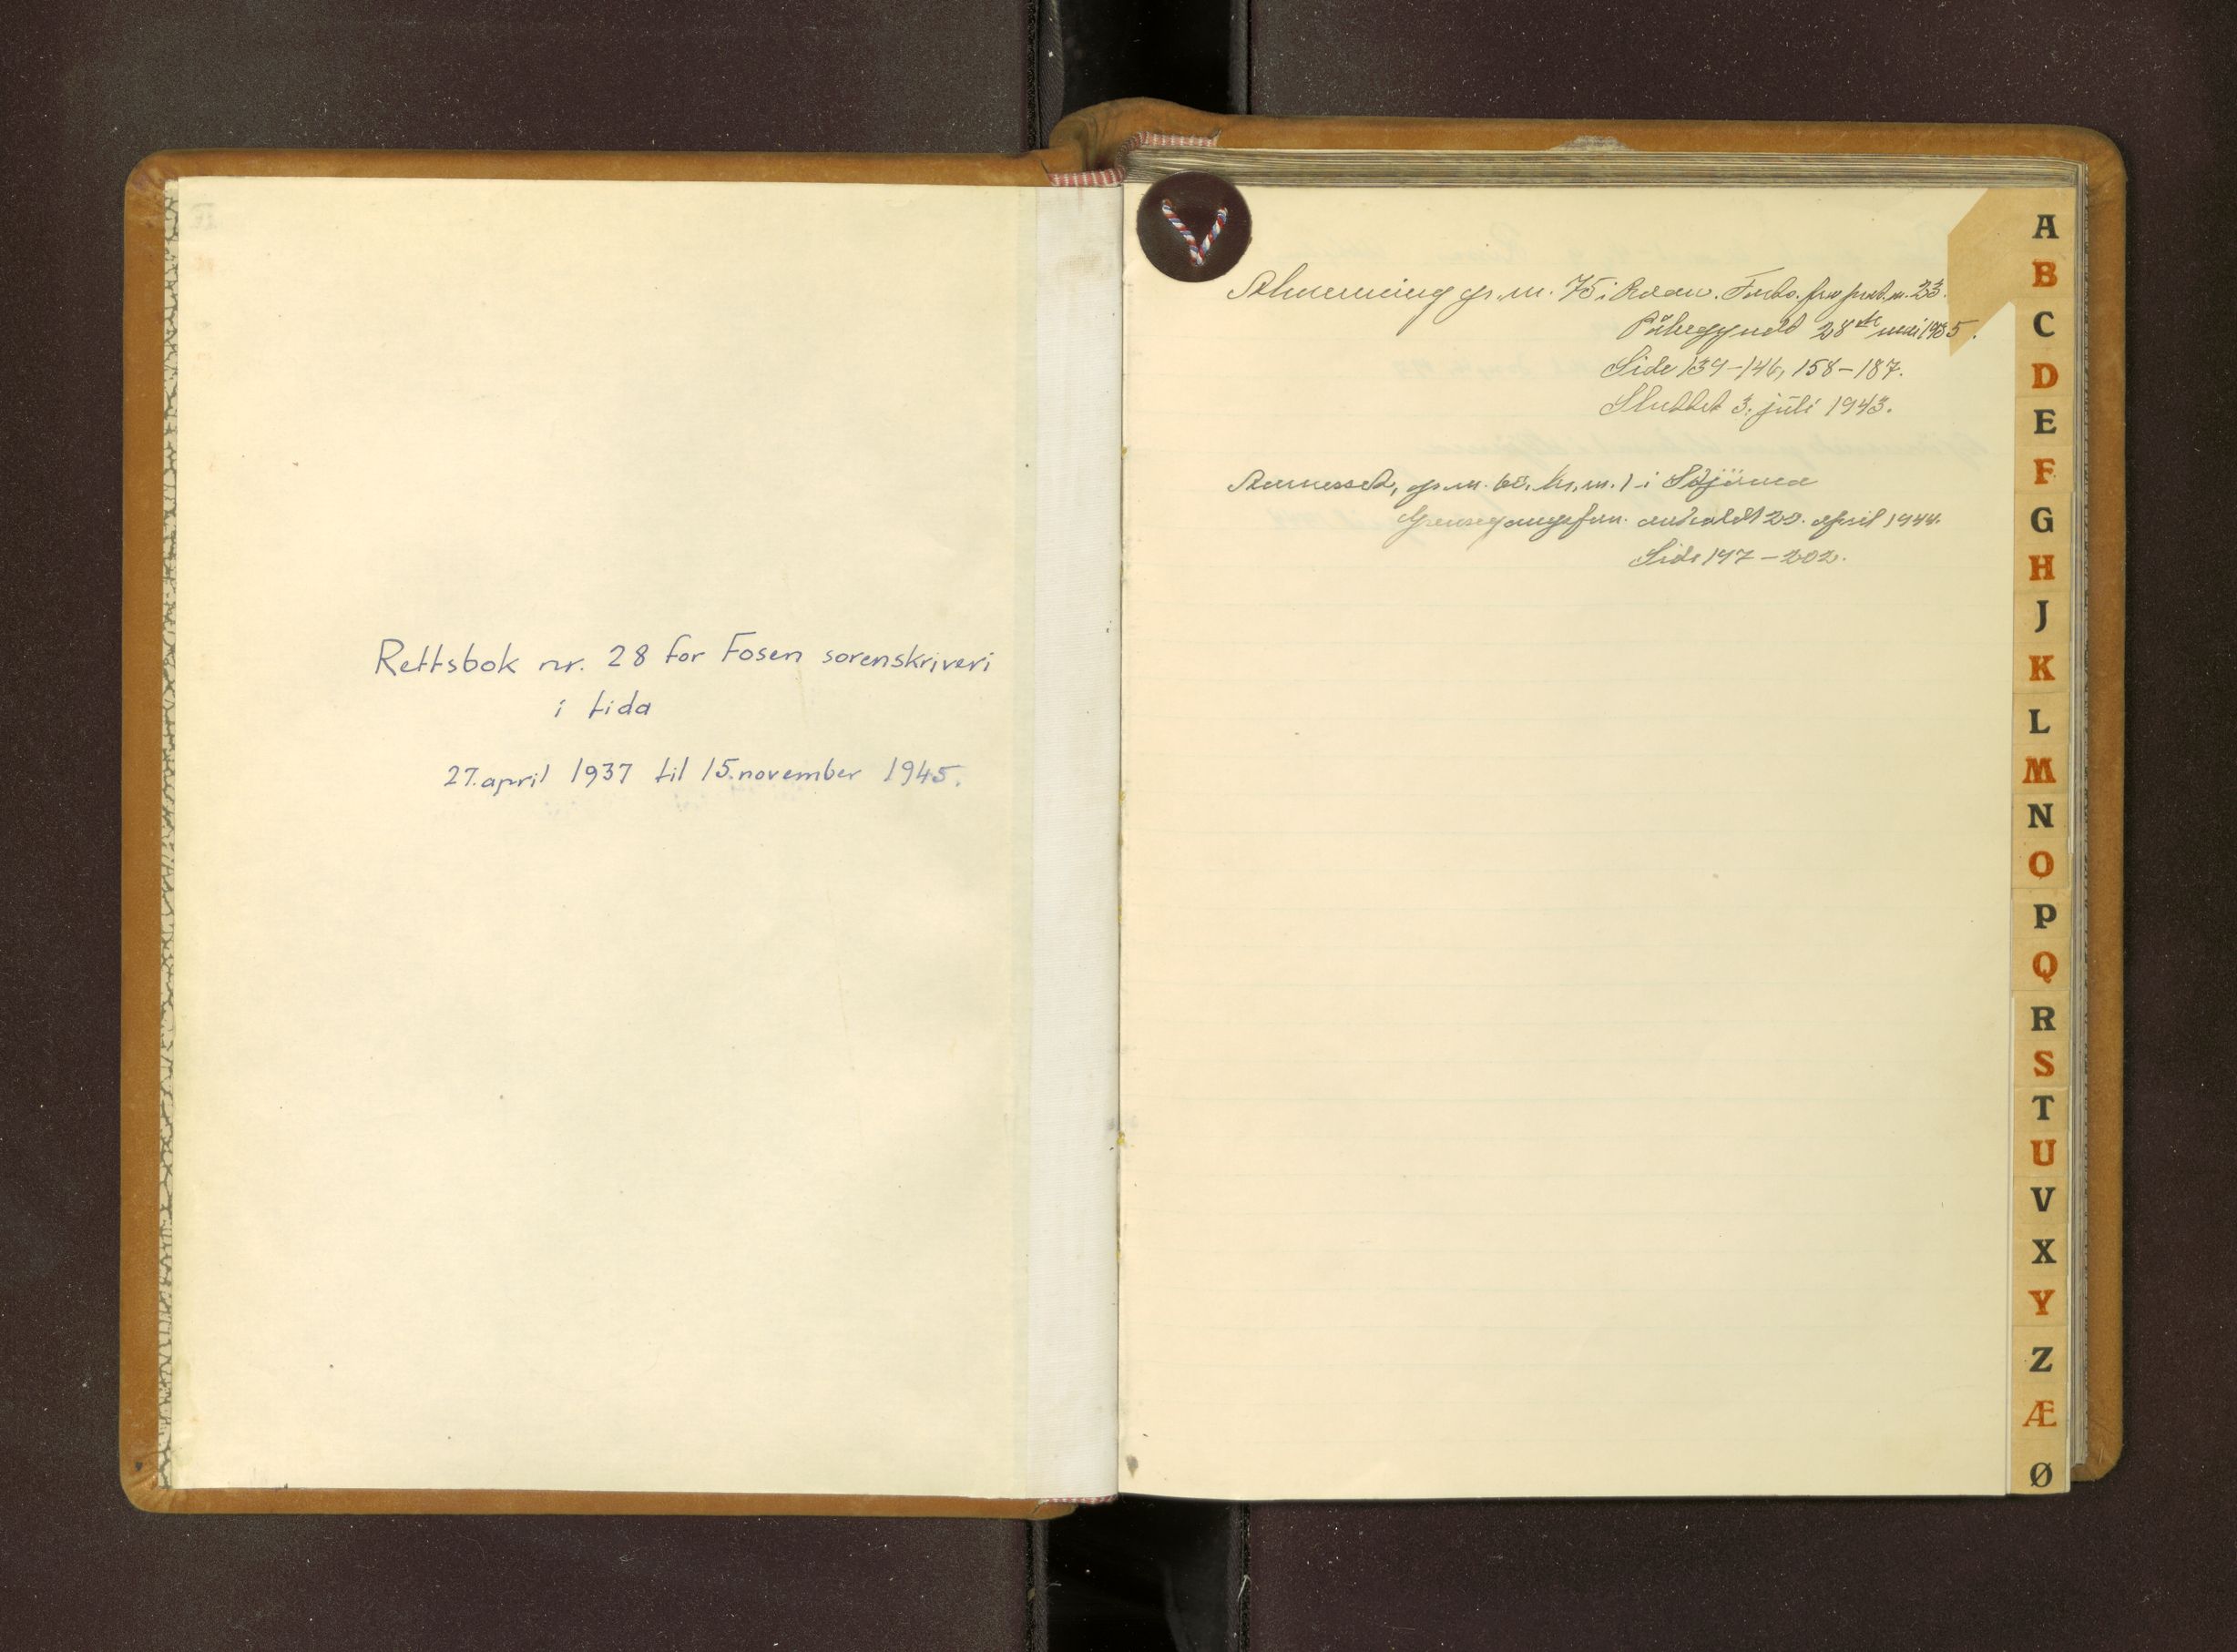 Rettsbok nr. 28 for Fosen sorenskriveri
i tida
27. april 1937 til 15. november 1945.
Almenning gr. nr. 75 i Roan. Forts. fra prot. nr. 23.
Påbegyndt 28de mai 1935.
Side 139-146, 158-187.
Sluttet 3. juli 1943.
gr. nr. 68, br. nr. 1 i Stjörna
avholdt 20. april 1944.
Side 197-202.
A
B
C
D
E
F
G
H
J
K
L
M
N
O
P
Q
R
S
T
U
V
X
Y
Z
Æ
Ø